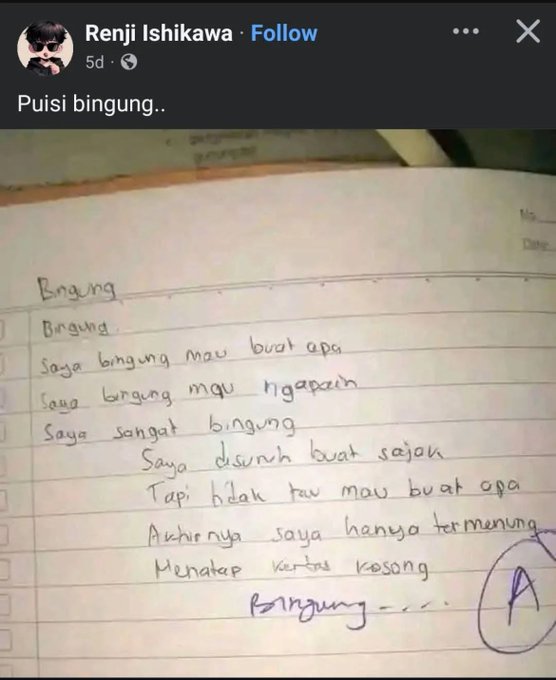 Renji Ishikawa · Follow
5d ·
Puisi bingung..
No
Date
Bingung
Bingung
Saya bingung mau buat apa
Saya bingung mau ngapain
Saya sangat bingung
Saya disuruh buat sajak
Tapi tidak tau mau buat apa
Akhirnya saya hanya termenung
Menatap kertas kosong
Bingung ....
A